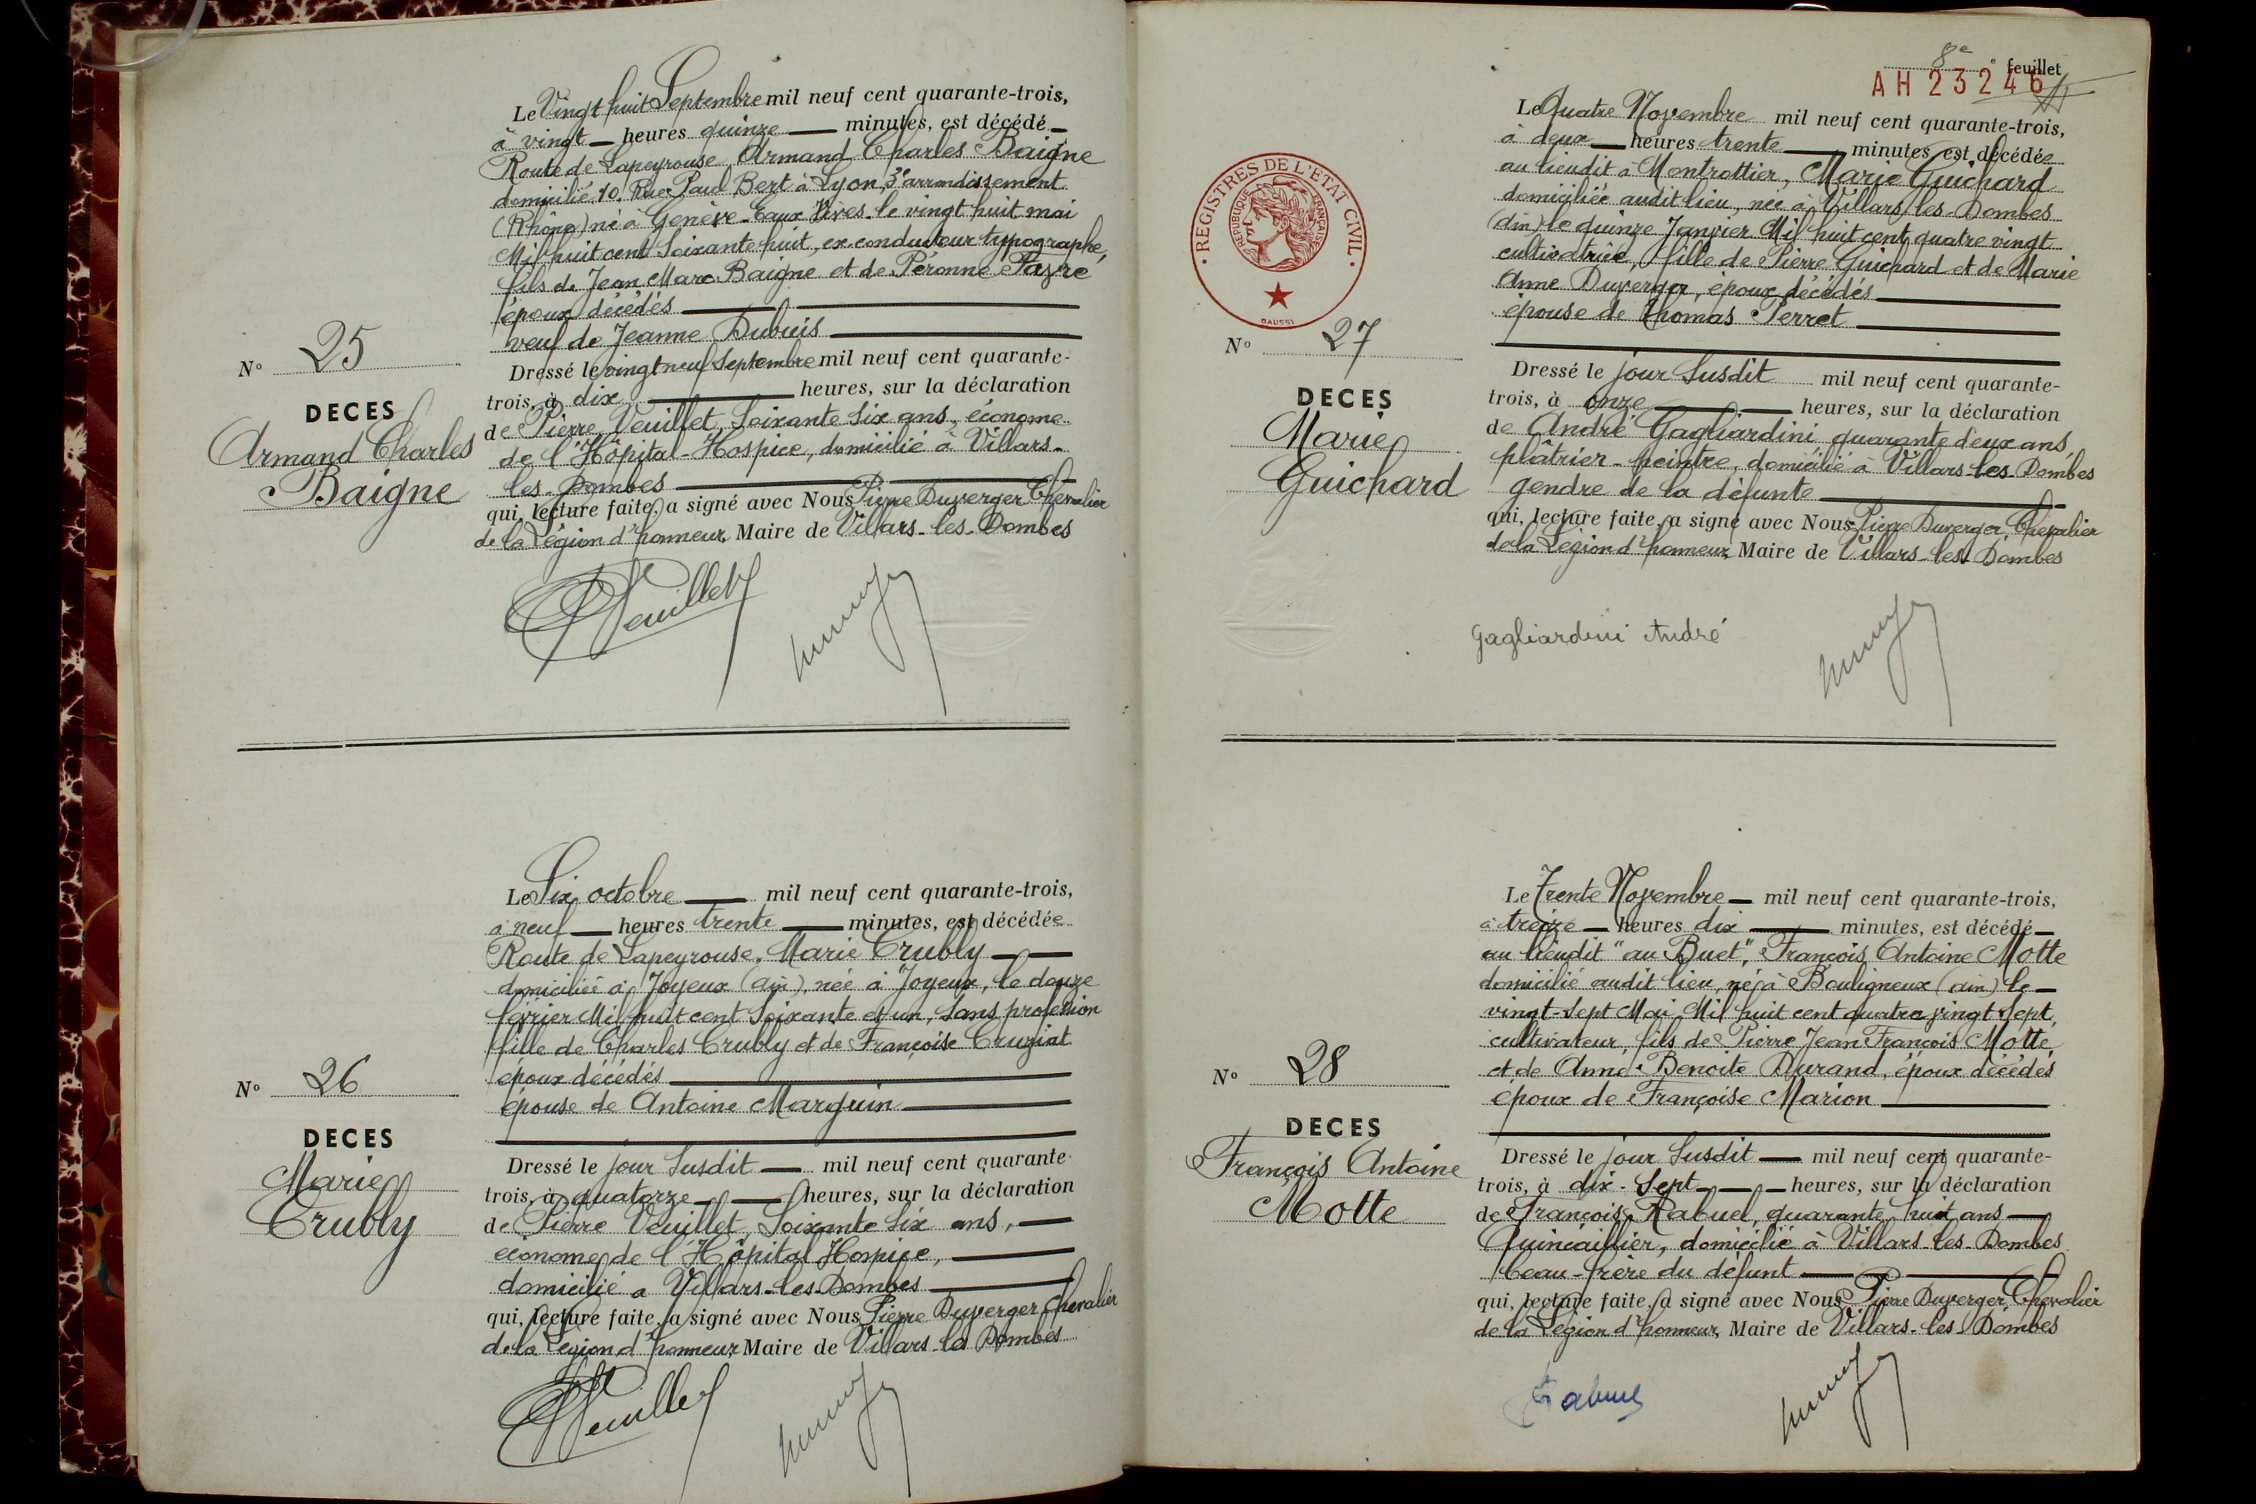 Le Vingt huit Septembre mil neuf cent quarante-trois,
à vingt heures quinze minutes, est décédé
Route de Lapeyrouse, Armand Charles Baigne
domicilié 10, Rue Paul Bert à Lyon, 3e arrondissement
(Rhône) né à Genève-Eaux Vives le vingt huit mai
Mil huit cent Soixante huit, ex conducteur typographe,
fils de Jean Marc Baigne et de Péronne Favre
époux décédés
veuf de Jeanne Dubuis
Dressé le vingt neuf Septembre mil neuf cent quarante-
trois, à dix heures, sur la déclaration
de Pierre Veuillet, Soixante Six ans, économe
de l'Hôpital-Hospice, domicilié à Villars-
les-Dombes
qui, lecture faite, a signé avec Nous Pierre Duverger Chevalier
de la Légion d'honneur, Maire de Villars-les-Dombes
N° 25
DECES
Armand Charles
Baigne
Veuillet
Le Six octobre mil neuf cent quarante-trois,
à neuf heures trente minutes, est décédée
Route de Lapeyrouse, Marie Crubly
domiciliée à Joyeux (Ain), née à Joyeux, le douze
février Mil huit cent Soixante et un, Sans profession
fille de Charles Crubly et de Françoise Cruziat
époux décédés
épouse de Antoine Marguin
Dressé le jour Susdit mil neuf cent quarante-
trois, à quatorze heures, sur la déclaration
de Pierre Veuillet, Soixante Six ans,
économe de l'Hôpital Hospice,
domicilié a Villars-les-Dombes
qui, lecture faite, a signé avec Nous Pierre Duverger Chevalier
de la Légion d'honneur, Maire de Villars-les-Dombes
N° 26
DECES
Marie
Crubly
Veuillet
8e feuillet
AH 23246
REGISTRES DE L'ETAT CIVIL
REPUBLIQUE FRANÇAISE
DAUSSI
Le Quatre Novembre mil neuf cent quarante-trois,
à deux heures trente minutes, est décédée
au lieudit à Montrottier, Marie Guichard
domiciliée audit lieu, née à Villars les-Dombes
(Ain) le quinze Janvier Mil huit cent quatre vingt
cultivatrice, fille de Pierre Guichard et de Marie
Anne Duverger, époux décédés
épouse de Thomas Perret
Dressé le jour Susdit mil neuf cent quarante-
trois, à onze heures, sur la déclaration
de André Gagliardini quarante deux ans,
plâtrier-peintre, domicilié à Villars-les-Dombes
gendre de la défunte
qui, lecture faite, a signé avec Nous Pierre Duverger, Chevalier
de la Légion d'honneur, Maire de Villars-les-Dombes
N° 27
DECES
Marie
Guichard
Gagliardini André
Le Trente Novembre mil neuf cent quarante-trois,
à treize heures dix minutes, est décédé
au lieudit "au Buet", François Antoine Motte
domicilié audit lieu, né à Bouligneux (Ain) le
vingt-Sept Mai Mil huit cent quatre vingt Sept,
cultivateur, fils de Pierre Jean François Motte,
et de Anne Benoite Durand, époux décédés
époux de Françoise Marion
Dressé le jour Susdit mil neuf cent quarante-
trois, à dix-Sept heures, sur la déclaration
de François Rabuel, quarante huit ans
Quincaillier, domicilié à Villars-les-Dombes
beau-frère du défunt
qui, lecture faite, a signé avec Nous Pierre Duverger, Chevalier
de la Légion d'honneur, Maire de Villars-les-Dombes
N° 28
DECES
François Antoine
Motte
Rabuel